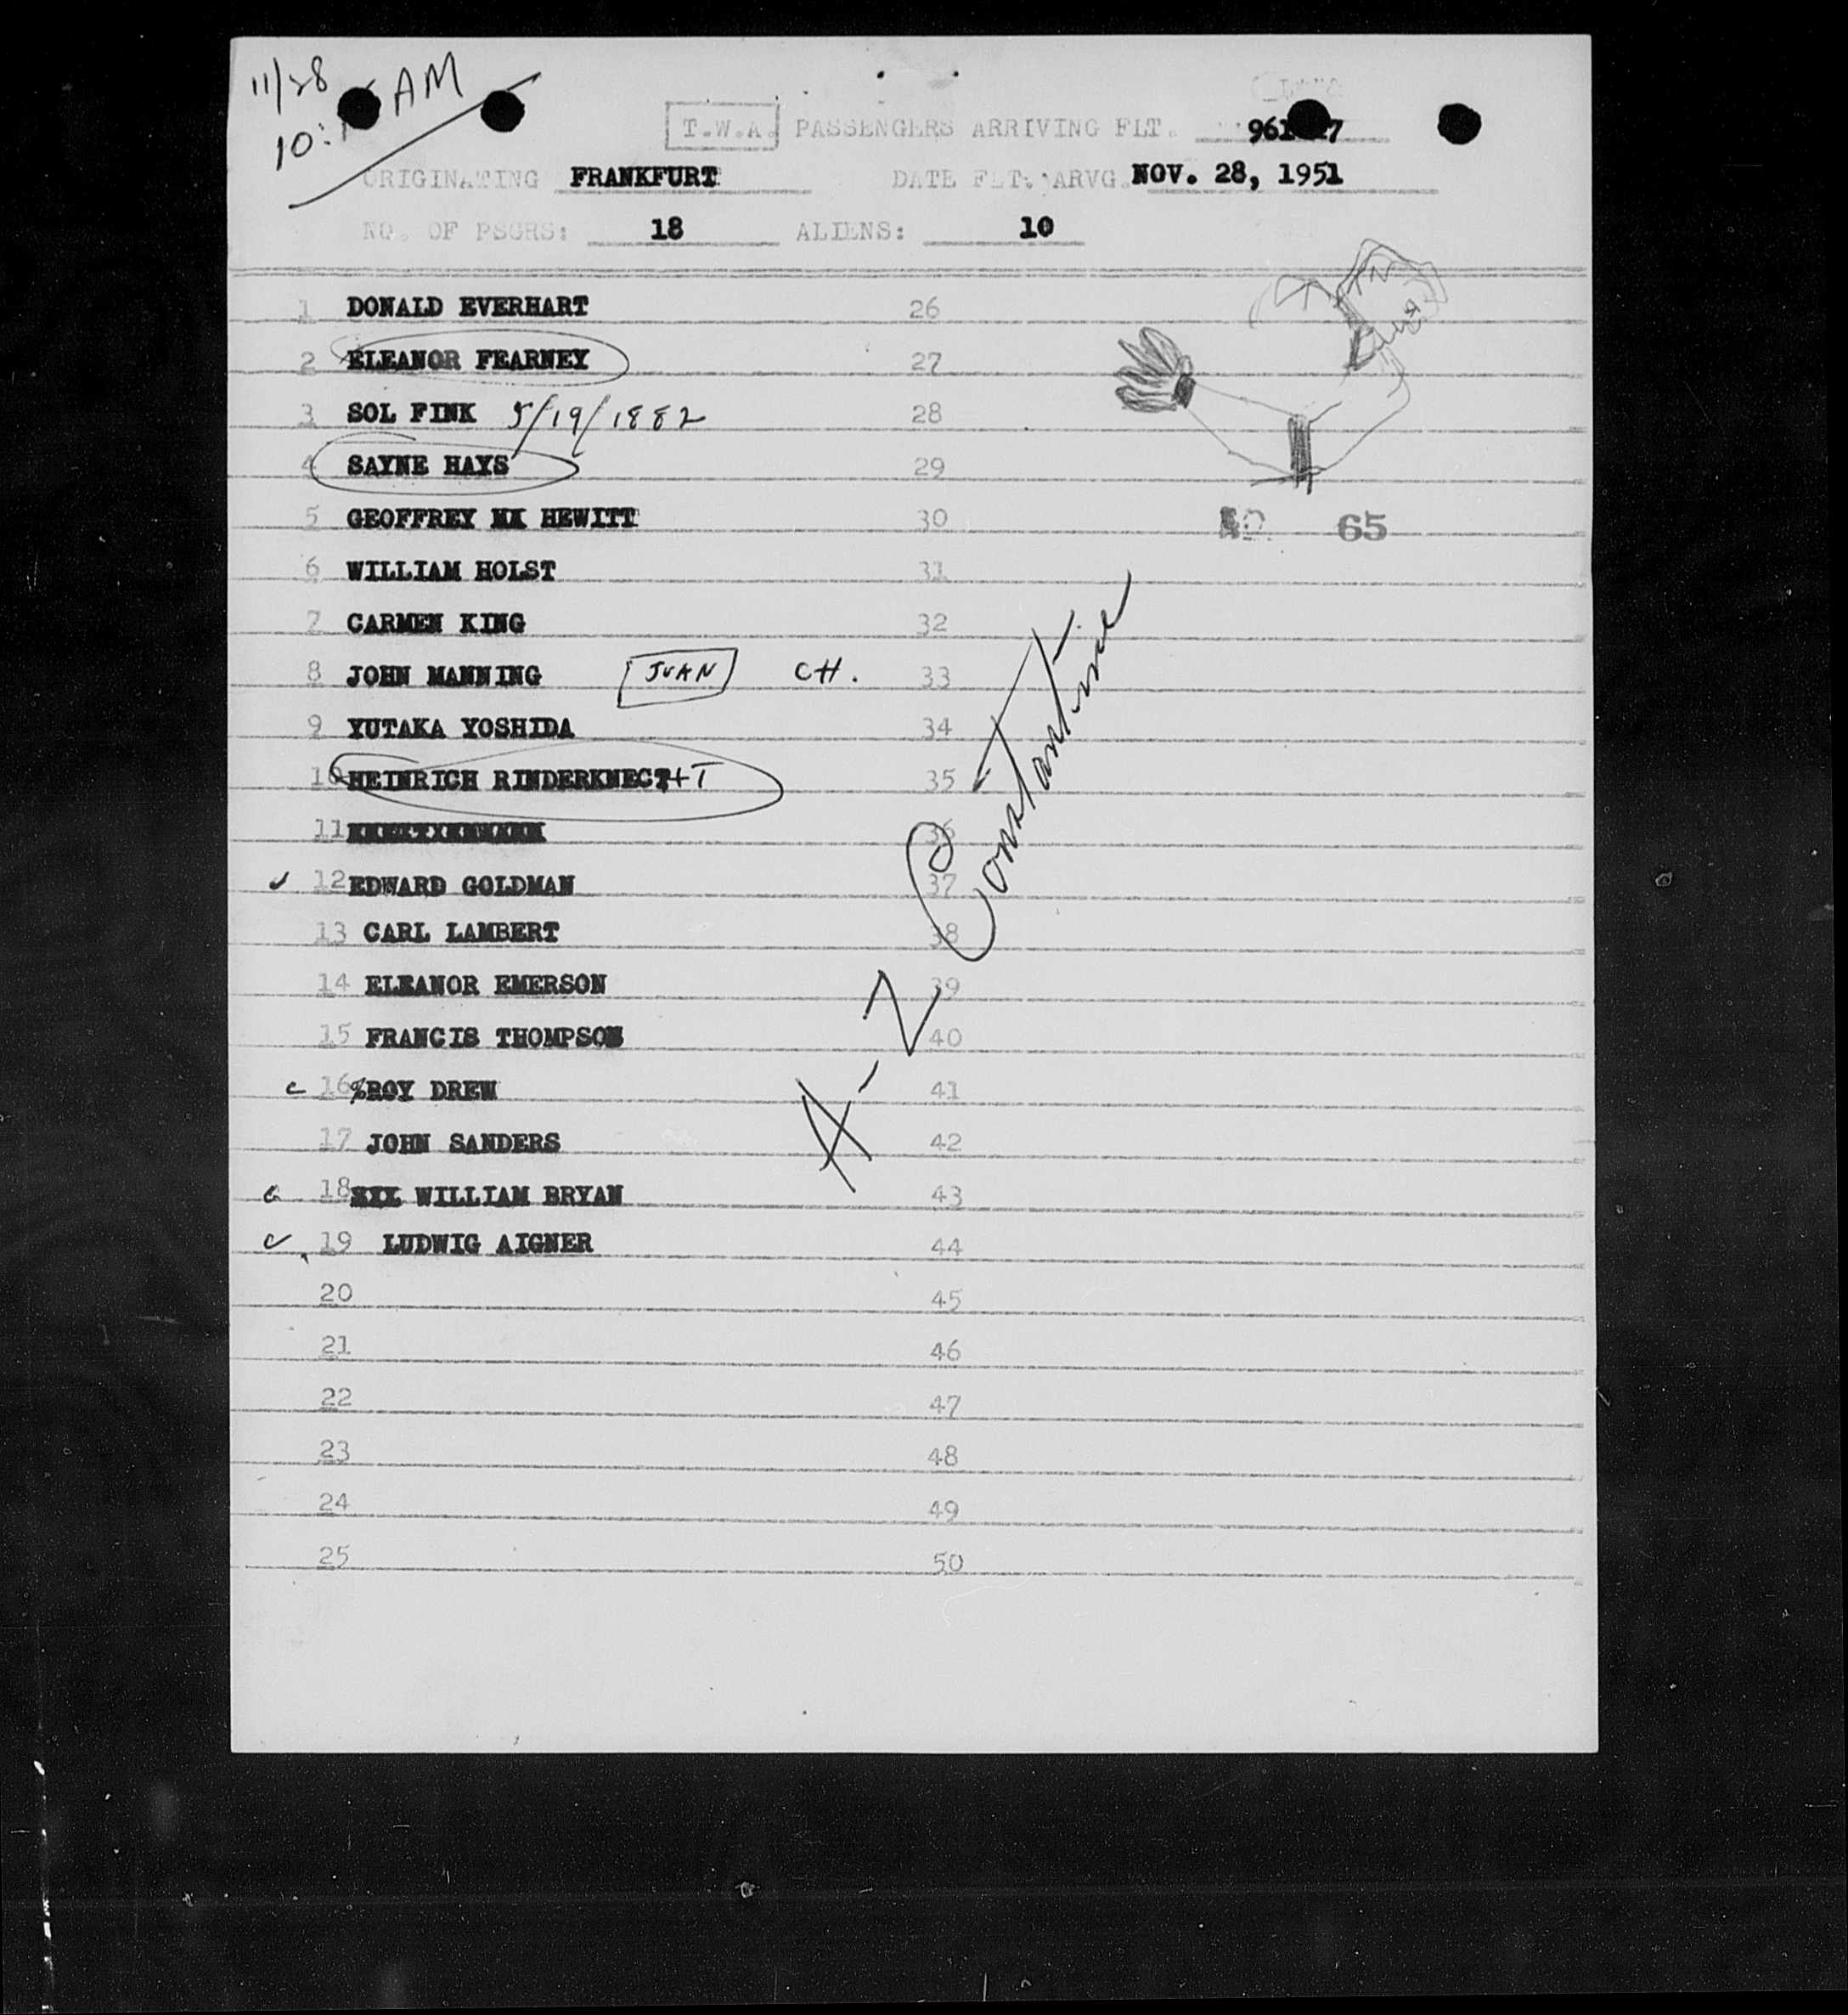 11/28
10: AM
T.W.A. PASSENGERS ARRIVING FLT. 961 7
ORIGINATING FRANKFURT DATE FLT. ARVG. NOV. 28, 1951
NO. OF PSGRS: 18 ALIENS: 10
1 DONALD EVERHART 26
2 ELEANOR FEARNEY 27
3 SOL FINK 5/19/1882 28
4 SAYNE HAYS 29
5 GEOFFREY HEWITT 30
NO. 65
6 WILLIAM HOLST 31
7 CARMEN KING 32
8 JOHN MANNING JUAN CH. 33
9 YUTAKA YOSHIDA 34
10 HEINRICH RINDERKNECHT 35
11 36
12 EDWARD GOLDMAN 37
13 CARL LAMBERT 38
14 ELEANOR EMERSON 39
15 FRANCIS THOMPSON 40
16 ROY DREW 41
17 JOHN SANDERS 42
18 WILLIAM BRYAN 43
19 LUDWIG AIGNER 44
20 45
21 46
22 47
23 48
24 49
25 50
A-Z Constantine